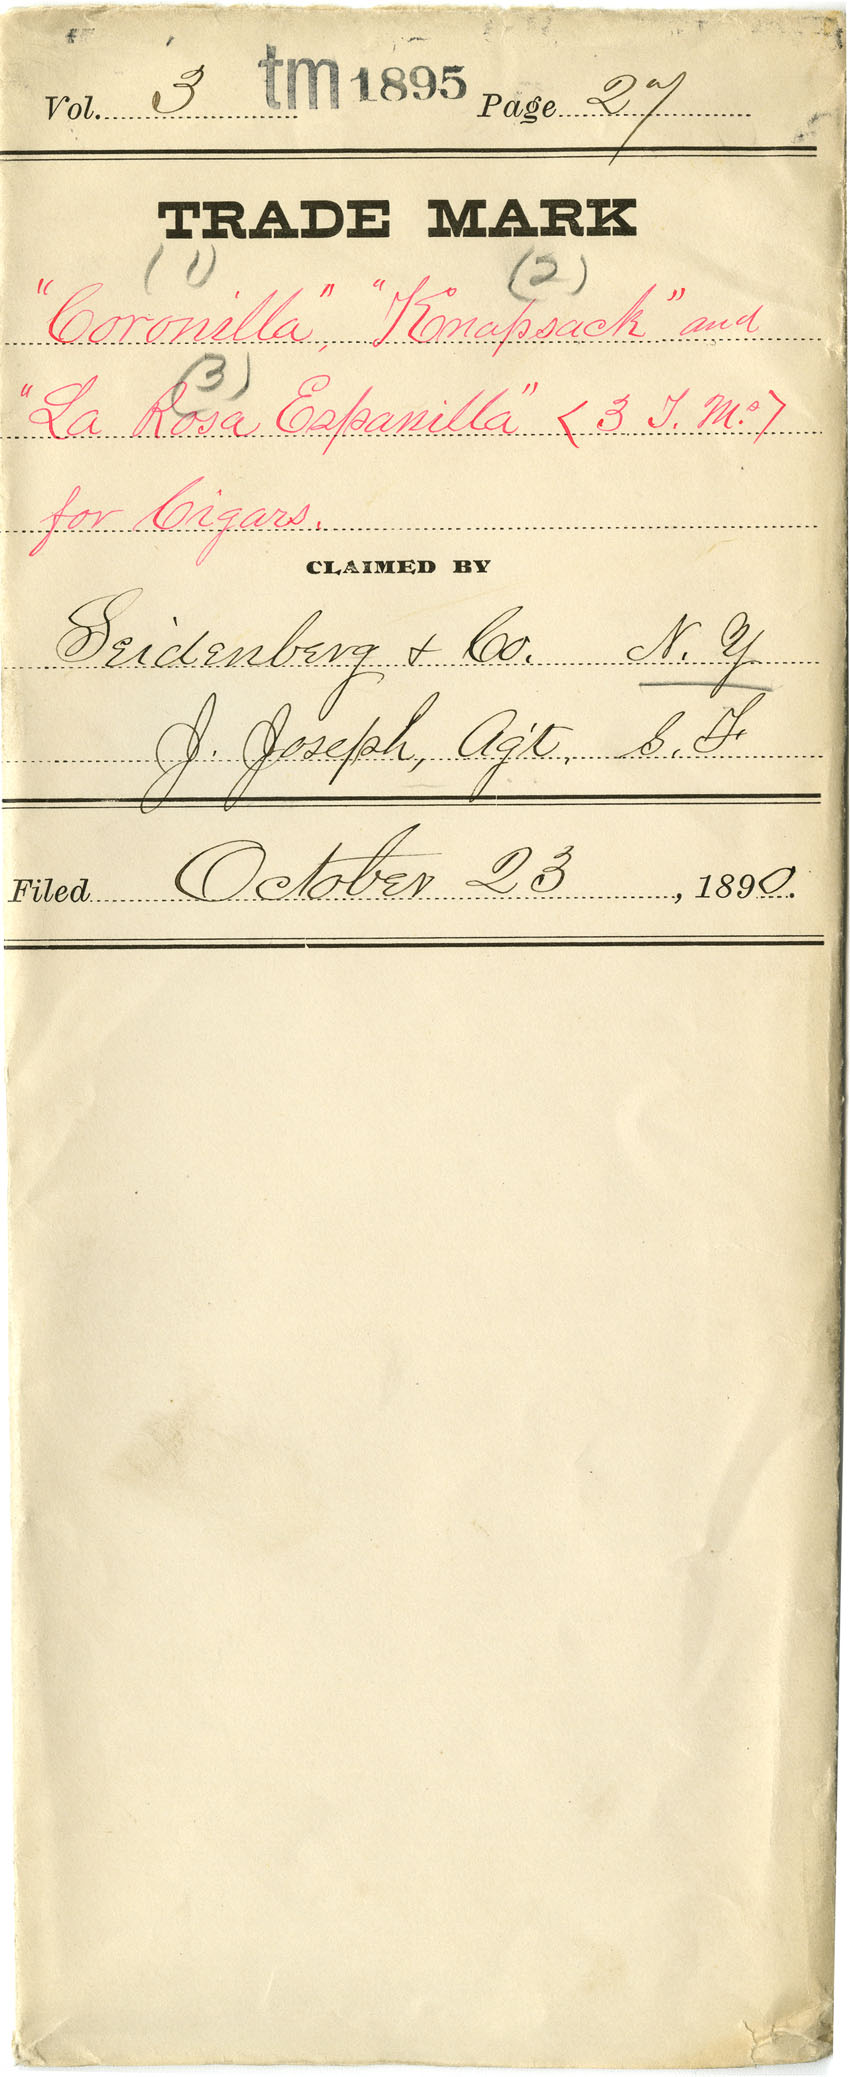 Vol. 3 tm 1895 Page 27
TRADE MARK
(1) (2)
"Coronilla", "Knapsack" and
(3)
"La Rosa Espanilla" <3 T. M.s>
for Cigars.
CLAIMED BY
Seidenberg & Co. N. Y
J. Joseph, Agt. S. F
Filed October 23, 1890.